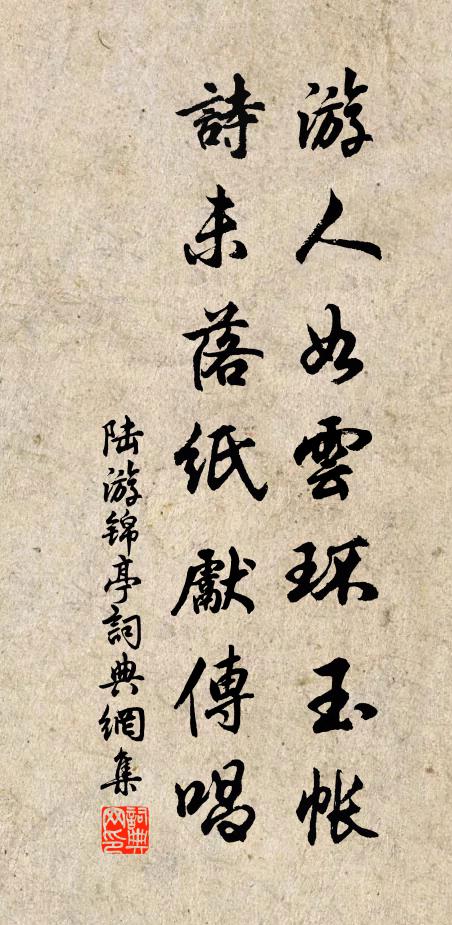 游人如雲环玉帳
詩未落紙獻傳唱
陆游锦亭詞典網集
詞典网印